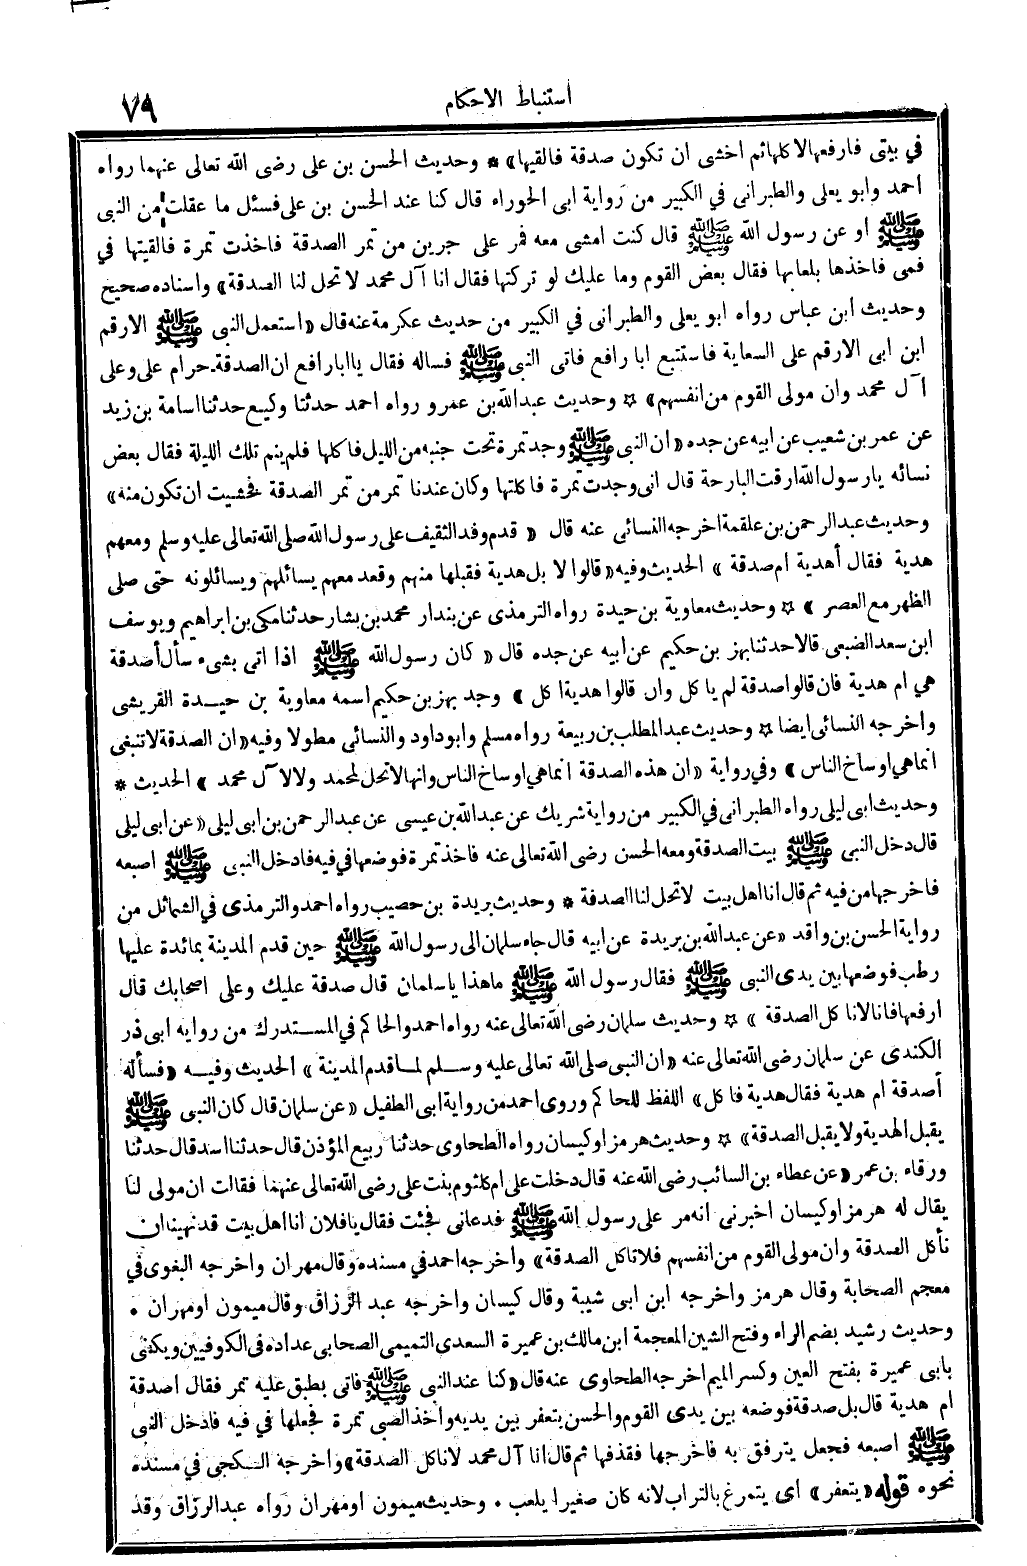 ٧٩
استنباط الاحكام
في بيتى فارفعها لاكلها ثم اخشى ان تكون صدقة فالقيها» * وحديث الحسن بن على رضى الله تعالى عنهما رواه
احمد وابو يعلى والطبرانى في الكبير من رواية ابى الحوراء قال كنا عند الحسن بن على فسئل ما عقلت من النبى
ﷺ او عن رسول الله ﷺ قال كنت امشى معه فمر على جرين من تمر الصدقة فاخذت تمرة فالقيتها في
فمى فاخذها بلعابها فقال بعض القوم وما عليك لو تركتها فقال انا آل محمد لا تحل لنا الصدقة» واسناده صحيح
وحديث ابن عباس رواه ابو يعلى والطبرانى في الكبير من حديث عكرمة عنه قال «استعمل النبى ﷺ الارقم
ابن ابى الارقم على السعاية فاستتبع ابا رافع فاتى النبى ﷺ فساله فقال يا ابا رافع ان الصدقة حرام على وعلى
آل محمد وان مولى القوم من انفسهم» ☆ وحديث عبد الله بن عمرو رواه احمد حدثنا وكيع حدثنا اسامة بن زيد
عن عمر بن شعيب عن ابيه عن جده «ان النبى ﷺ وجد تمرة تحت جنبه من الليل فاكلها فلم ينم تلك الليلة فقال بعض
نسائه يا رسول الله ارقت البارحة قال انى وجدت تمرة فاكلتها وكان عندنا تمر من تمر الصدقة فخشيت ان تكون منه»
وحديث عبد الرحمن بن علقمة اخرجه النسائى عنه قال « قدم وفد الثقيف على رسول الله صلى الله تعالى عليه وسلم ومعهم
هدية فقال أهدية ام صدقة » الحديث وفيه «قالوا لا بل هدية فقبلها منهم وقعد معهم يسائلهم ويسائلونه حتى صلى
الظهر مع العصر » ☆ وحديث معاوية بن حيدة رواه الترمذى عن بندار محمد بن بشار حدثنا مكى بن ابراهيم ويوسف
ابن سعد الضبعى قالا حدثنا بهز بن حكيم عن ابيه عن جده قال « كان رسول الله ﷺ اذا اتى بشىء سأل أصدقة
هي ام هدية فان قالوا صدقة لم ياكل وان قالوا هدية اكل » وجد بهز بن حكيم اسمه معاوية بن حيدة القريشى
واخرجه النسائى ايضا ☆ وحديث عبد المطلب بن ربيعة رواه مسلم وابو داود والنسائى مطولا وفيه «ان الصدقة لا تنبغى
انما هي اوساخ الناس» وفي رواية «ان هذه الصدقة انما هي اوساخ الناس وانها لا تحل لمحمد ولا لآل محمد » الحديث *
وحديث ابى ليلى رواه الطبرانى في الكبير من رواية شريك عن عبد الله بن عيسى عن عبد الرحمن بن ابى ليلى «عن ابى ليلى
قال دخل النبى ﷺ بيت الصدقة ومعه الحسن رضى الله تعالى عنه فاخذ تمرة فوضعها في فيه فادخل النبى ﷺ اصبعه
فاخرجها من فيه ثم قال انا اهل بيت لا تحل لنا الصدقة * وحديث بريدة بن حصيب رواه احمد والترمذى في الشمائل من
رواية الحسن بن واقد «عن عبد الله بن بريدة عن ابيه قال جاء سلمان الى رسول الله ﷺ حين قدم المدينة بمائدة عليها
رطب فوضعها بين يدى النبى ﷺ فقال رسول الله ﷺ ما هذا يا سلمان قال صدقة عليك وعلى اصحابك قال
ارفعها فانا لا ناكل الصدقة » ☆ وحديث سلمان رضى الله تعالى عنه رواه احمد والحاكم في المستدرك من رواية ابى ذر
الكندى عن سلمان رضى الله تعالى عنه «ان النبى صلى الله تعالى عليه وسلم لما قدم المدينة » الحديث وفيه «فسأله
أصدقة ام هدية فقال هدية فاكل» اللفظ للحاكم وروى احمد من رواية ابى الطفيل «عن سلمان قال كان النبى ﷺ
يقبل الهدية ولا يقبل الصدقة» ☆ وحديث هرمز او كيسان رواه الطحاوى حدثنا ربيع المؤذن قال حدثنا اسد قال حدثنا
ورقاء بن عمر «عن عطاء بن السائب رضى الله عنه قال دخلت على ام كلثوم بنت على رضى الله تعالى عنهما فقالت ان مولى لنا
يقال له هرمز او كيسان اخبرنى انه مر على رسول الله ﷺ فدعانى فجئت فقال يا فلان انا اهل بيت قد نهينا ان
نأكل الصدقة وان مولى القوم من انفسهم فلا تاكل الصدقة» واخرجه احمد في مسنده وقال مهران واخرجه البغوى في
معجم الصحابة وقال هرمز واخرجه ابن ابى شيبة وقال كيسان واخرجه عبد الرزاق وقال ميمون او مهران •
وحديث رشيد بضم الراء وفتح الشين المعجمة ابن مالك بن عميرة السعدى التميمى الصحابى عداده فى الكوفيين ويكنى
بابى عميرة بفتح العين وكسر الميم اخرجه الطحاوى عنه قال «كنا عند النبى ﷺ فاتى بطبق عليه تمر فقال اصدقة
ام هدية قال بل صدقة فوضعه بين يدى القوم والحسن يتعفر بين يديه واخذ الصبى تمرة فجعلها في فيه فادخل النبى
ﷺ اصبعه فجعل يترفق به فاخرجها فقذفها ثم قال انا آل محمد لا ناكل الصدقة» واخرجه الكجى في مسنده
نحوه قوله «يتعفر» اى يتمرغ بالتراب لانه كان صغيرا يلعب • وحديث ميمون او مهران رواه عبد الرزاق وقد